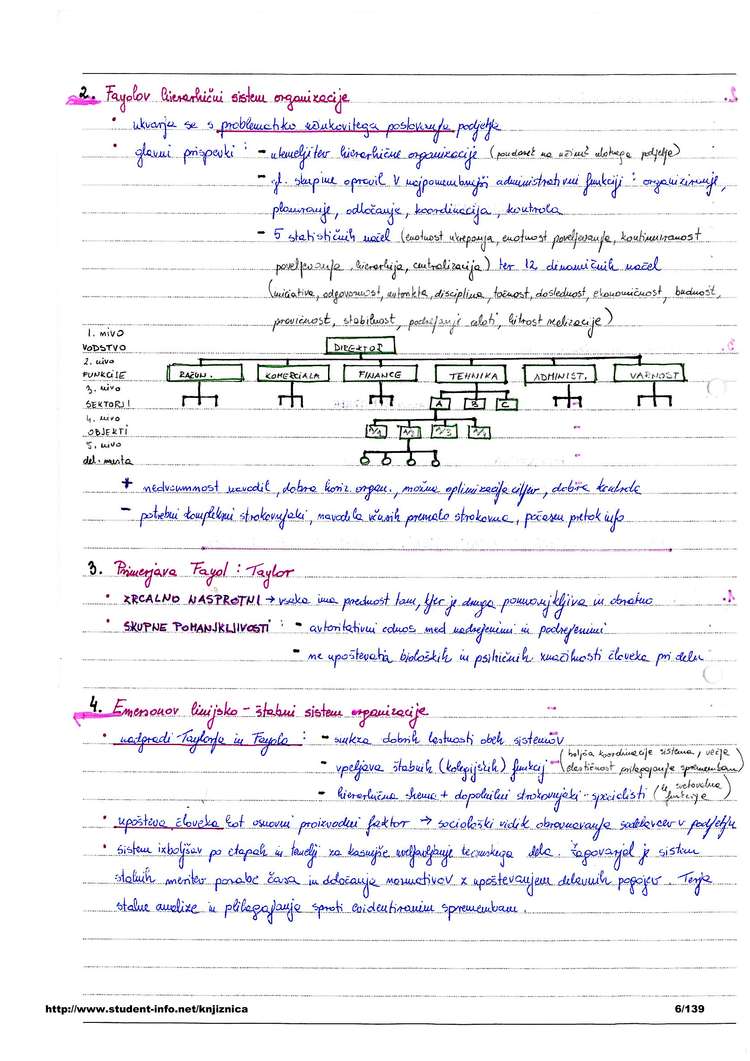 2. Fayolov hierarhični sistem organizacije
• ukvarja se s problematiko učinkovitega poslovanja podjetja
• glavni prispevki : - utemeljitev hierarhične organizacije (poudarek na podjetja)
- gl. skupine opravil v najpomembnejši administrativni funkciji : organiziranje,
planiranje, odločanje, koordinacija, kontrola
- 5 statističnih načel (enotnost ukrepanja, enotnost poveljevanja, kontinuiranost
poveljevanja, hierarhija, centralizacija) ter 12 dinamičnih načel
(iniciativa, odgovornost, avtoriteta, disciplina, točnost, doslednost, ekonomičnost, budnost,
pravičnost, stabilnost, podrejanje celoti, hitrost realizacije)
1. nivo
VODSTVO DIREKTOR
2. nivo
FUNKCIJE RAZUN. KOMERCIALA FINANCE TEHNIKA ADMINIST. VARNOST
3. nivo
SEKTORJI A B C
4. nivo
OBJEKTI A/1 A/2 A/3 A/4
5. nivo
del. mesta
+ nedvoumnost navodil, dobra horiz. organ., možna optimizacija ciljev, dobra kontrola
- potrebni kompleksni strokovnjaki, navodila včasih premalo strokovna, počasen pretok info
3. Primerjava Fayol : Taylor
• ZRCALNO NASPROTNI → vsaka ima prednost tam, kjer je druga pomanjkljiva in obratno
• SKUPNE POMANJKLJIVOSTI : - avtoritativni odnos med nadrejenimi in podrejenimi
- ne upoštevata bioloških in psihičnih značilnosti človeka pri delu
4. Emersonov linijsko - štabni sistem organizacije
• nadgradi Taylorja in Fayola : - sinteza dobrih lastnosti obeh sistemov
- vpeljava štabnih (kolegijskih) funkcij (boljša koordinacija sistema, večja elastičnost prilagajanja spremembam)
- hierarhična shema + dopolnilni strokovnjaki - specialisti (svetovalne funkcije)
• upošteva človeka kot osnovni proizvodni faktor → sociološki vidik obravnavanja sodelavcev v podjetju
• sistem izboljšav po etapah in temelji za kasnejše uveljavljanje timskega dela. Zagovarjal je sistem
stalnih meritev porabe časa in določanja normativov z upoštevanjem delavnih pogojev. Terja
stalne analize in prilagajanja sproti evidentiranim spremembam.
http://www.student-info.net/knjiznica 6/139